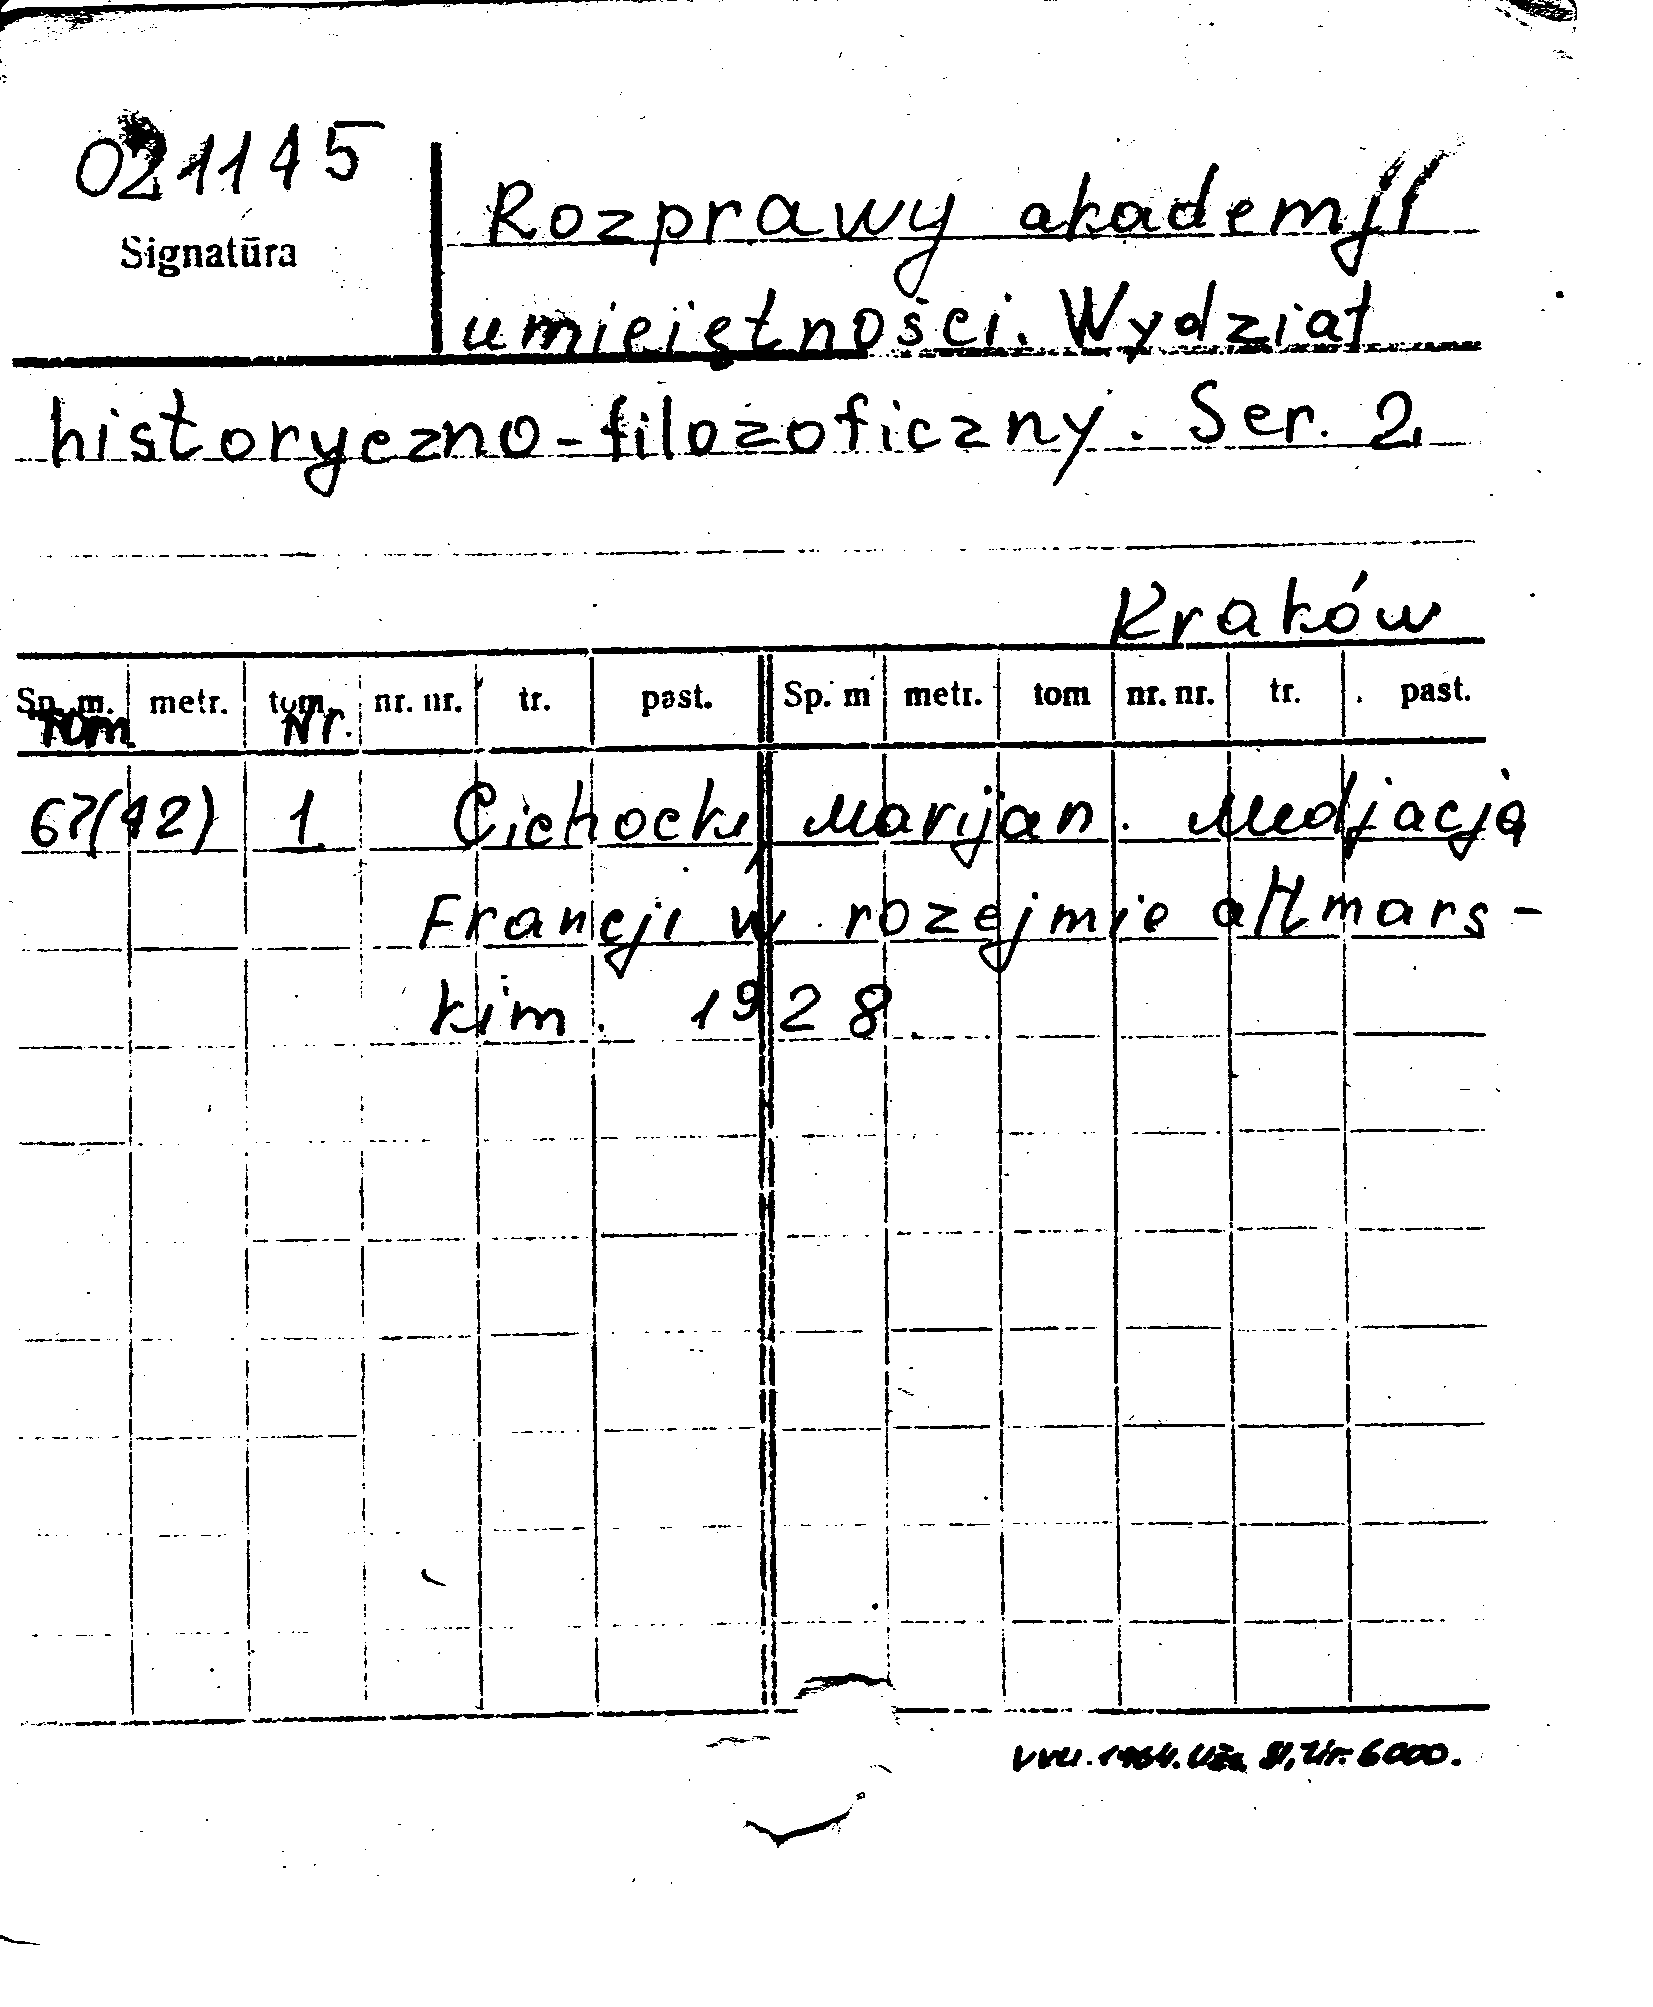 021145
Signatūra
Rozprawy akademji
umieiętności. Wydział
historyczno-filozoficzny. Ser. 2.
Kraków
Sp. m. metr. tom. nr. nr. tr. past. Sp. m metr. tom nr. nr. tr. past.
Tom Nr.
67(42) 1. Cichocki, Marijan. Medjacja
Francji w rozejmie altmars-
kim. 1928.
VVU. 1964. Užs. 81, tir. 6000.